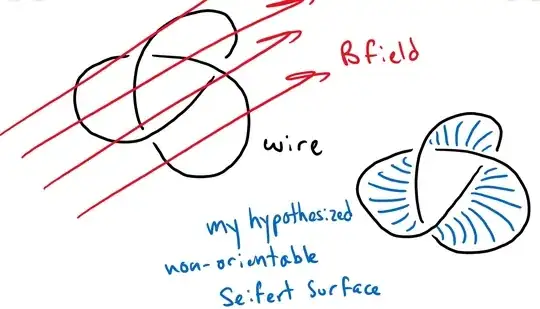 B field
wire
my hypothesized
non-orientable
Seifert Surface